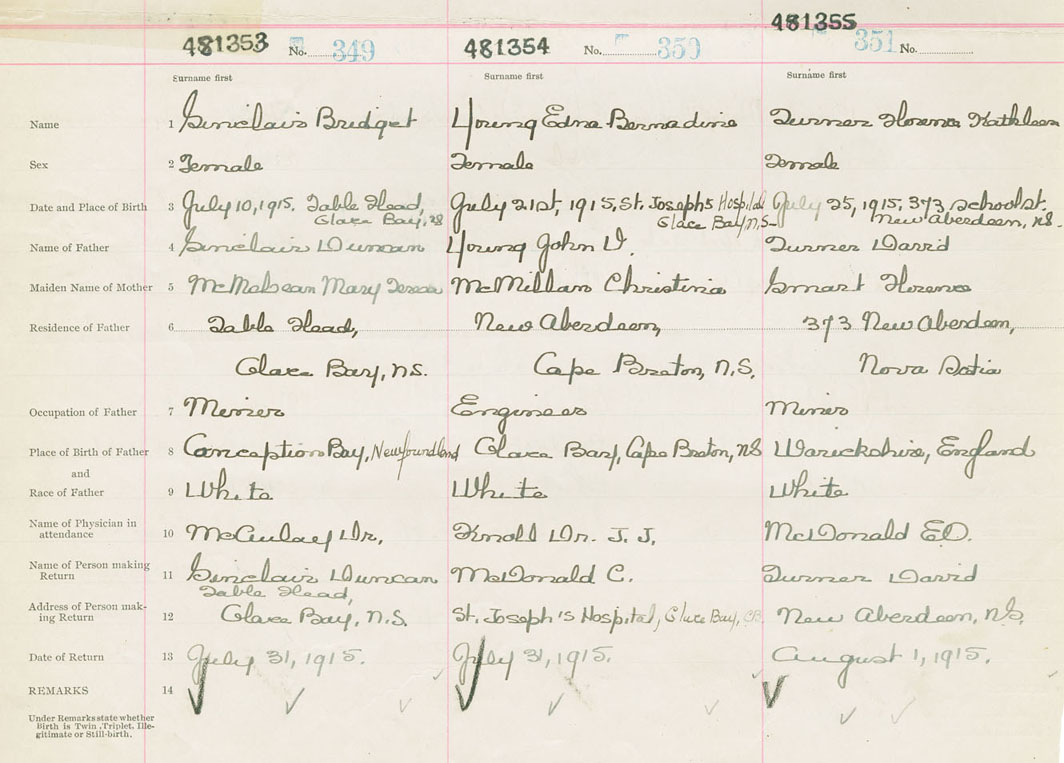 481353 No. 349 481354 No. 350 481355 351 No.
Surname first Surname first Surname first
Name 1 Sinclair Bridget Young Edna Bernadine Turner Florence Kathleen
Sex 2 Female Female Female
Date and Place of Birth 3 July 10, 1915. Table Head, July 21st, 1915, St. Joseph's Hospital July 25, 1915, 373 School St.
Glace Bay, NS Glace Bay, N.S. New Aberdeen, N.S.
Name of Father 4 Sinclair Duncan Young John D. Turner David
Maiden Name of Mother 5 Mary McMillan Christina Smart Florence
Residence of Father 6 Table Head, New Aberdeen, 373 New Aberdeen,
Glace Bay, N.S. Cape Breton, N.S. Nova Scotia
Occupation of Father 7 Miner Engineer Miner
Place of Birth of Father 8 Conception Bay, Newfoundland Glace Bay, Cape Breton, NS Warickshire, England
and
Race of Father 9 White White White
Name of Physician in
attendance 10 McAulay Dr. Knoll Dr. J. J. McDonald E.D.
Name of Person making
Return 11 Sinclair Duncan McDonald C. Turner David
Table Head,
Address of Person mak-
ing Return 12 Glace Bay, N.S. St. Joseph's Hospital, Glace Bay, CB. New Aberdeen, N.S.
Date of Return 13 July 31, 1915. July 31, 1915. August 1, 1915.
REMARKS 14
Under Remarks state whether
Birth is Twin, Triplet, Ille-
gitimate or Still-birth.